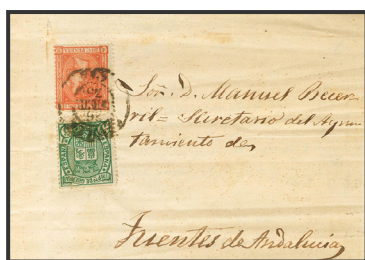 Sor. D. Manuel Becer
ril = Secretario del Ayun
tamiento de
Fuentes de Andalucia